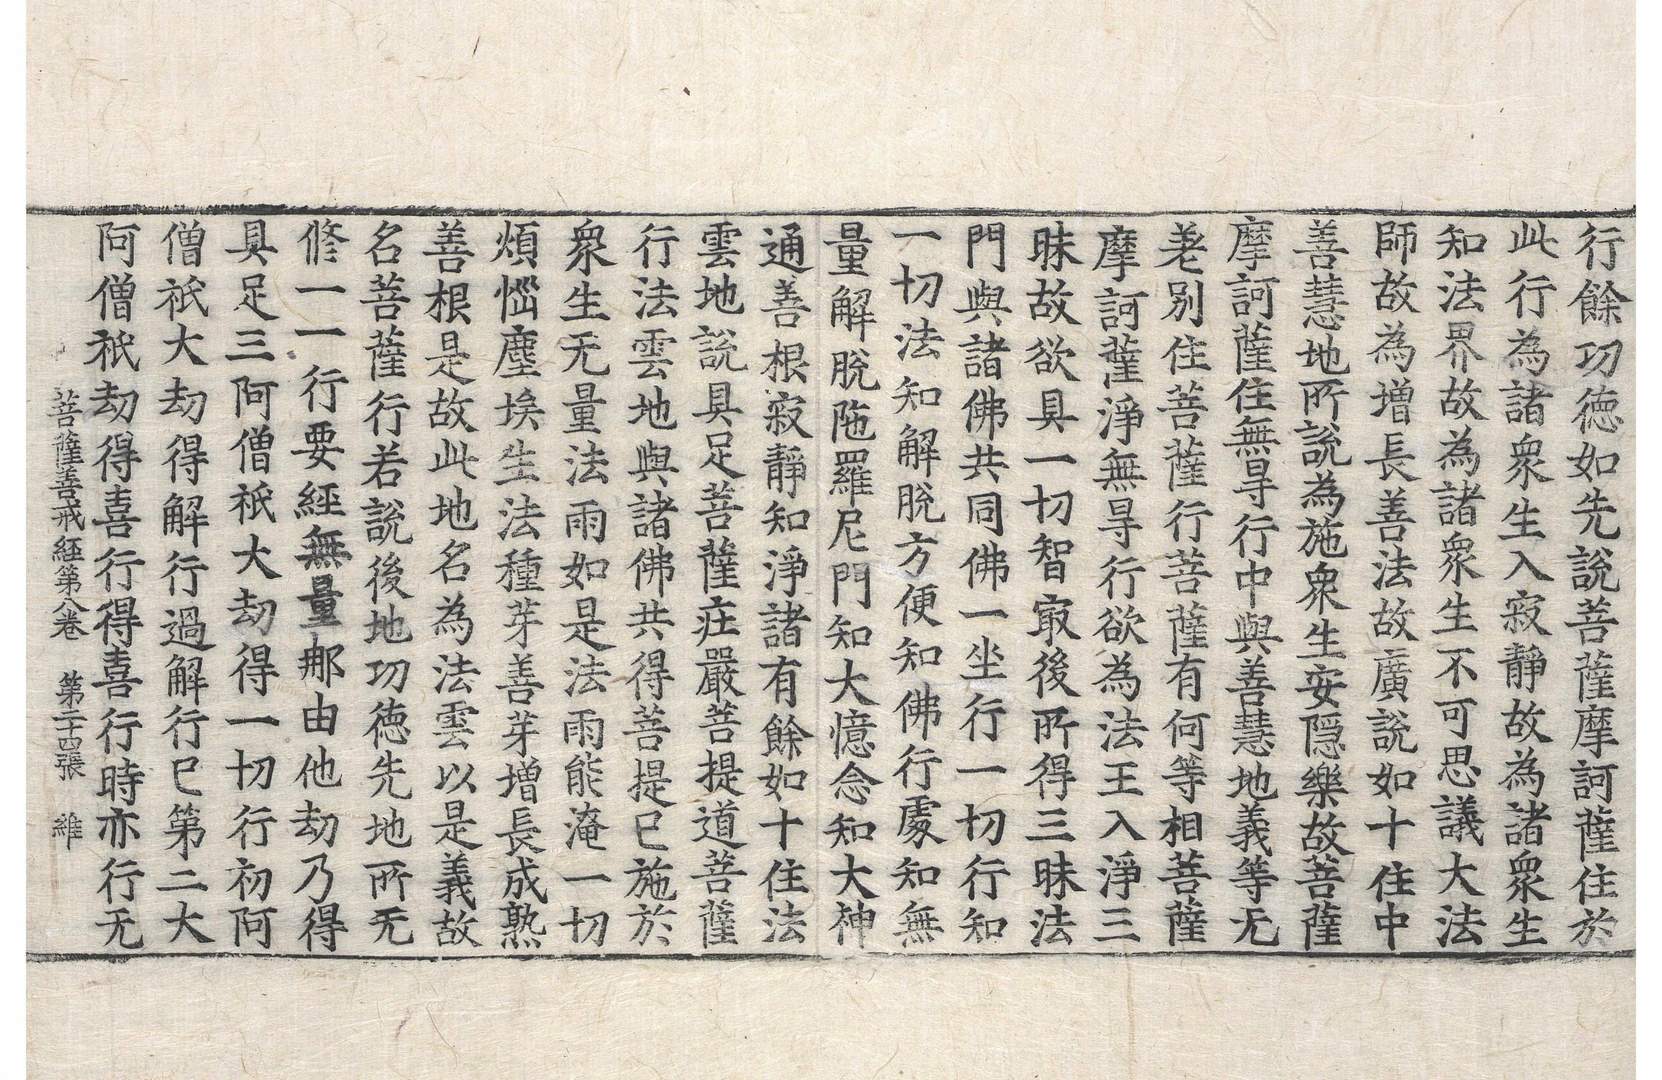 行餘功德如先說菩薩摩訶薩住於
此行為諸衆生入寂靜故為諸衆生
知法界故為諸衆生不可思議大法
師故為增長善法故廣說如十住中
善慧地所說為施衆生安隱樂故菩薩
摩訶薩住無㝵行中與善慧地義等无
差別住菩薩行菩薩有何等相菩薩
摩訶薩淨無㝵行欲為法王入淨三
昧故欲具一切智㝡後所得三昧法
門與諸佛共同佛一坐行一切行知
一切法知解脫方便知佛行處知無
量解脫陁羅尼門知大憶念知大神
通善根寂靜知淨諸有餘如十住法
雲地說具足菩薩莊嚴菩提道菩薩
行法雲地與諸佛共得菩提已施於
衆生无量法雨如是法雨能淹一切
煩惱塵埃生法種芽善芽增長成熟
善根是故此地名為法雲以是義故
名菩薩行若說後地功德先地所无
修一一行要經無量那由他劫乃得
具足三阿僧祇大劫得一切行初阿
僧祇大劫得解行過解行已第二大
阿僧祇劫得喜行得喜行時亦行无
菩薩善戒經第八卷　第二十四張　維